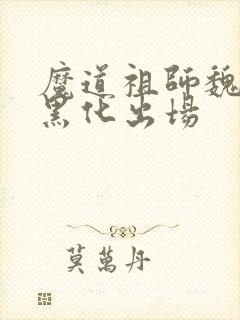 魔道祖師魏
黑化出場
莫萬丹